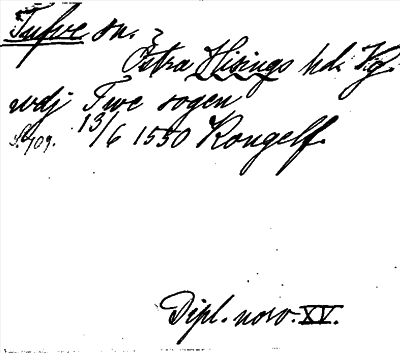 Tufve sn.
Östra Hisings hd. Kg.
wdj Twe sogen
S. 409. 13/6 1550 Kongelf.
Dipl. norv. XV.